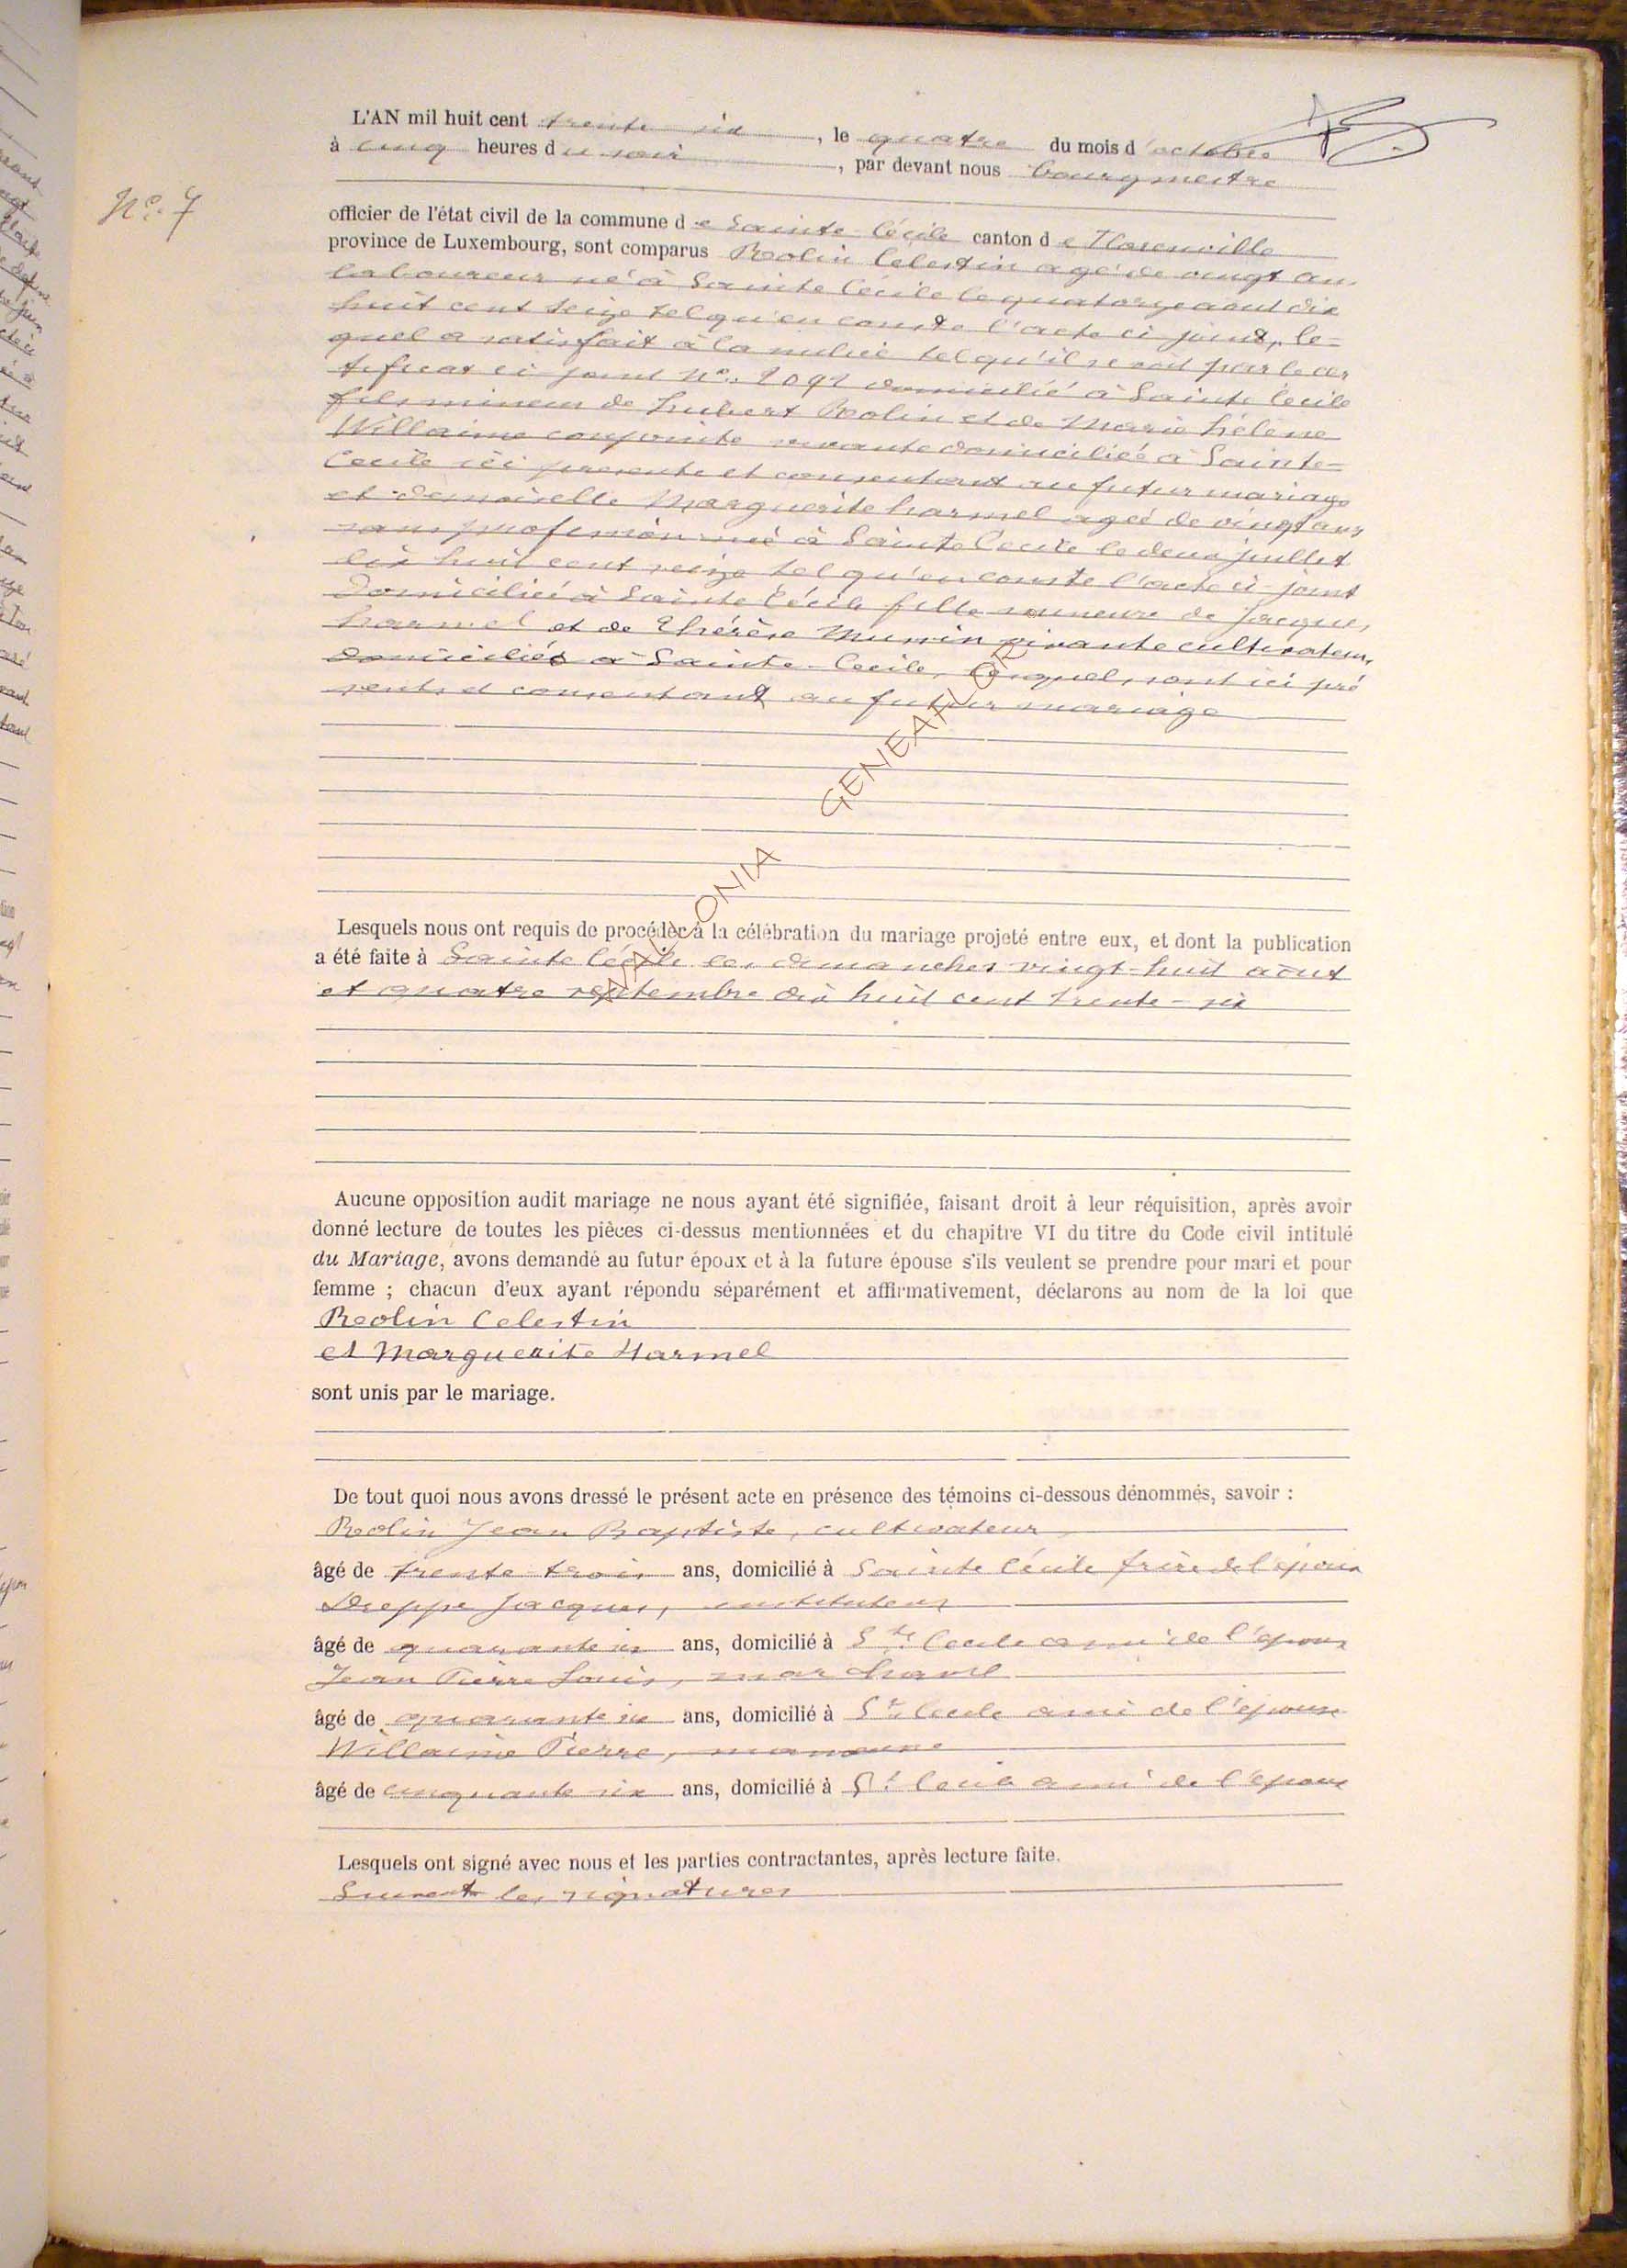 L'AN mil huit cent trente six, le quatre du mois d'octobre
à cinq heures du soir, par devant nous bourgmestre
N° 7
officier de l'état civil de la commune de Sainte-Cécile canton de Florenville
province de Luxembourg, sont comparus Rolin Celestin agé de vingt ans
laboureur né à Sainte Cécile le quatorze aout dix
huit cent seize tel qu'en conste l'acte ci-joint, le=
quel a satisfait à la milice tel qu'il se voit par le cer
tificat ci joint N°. 1091 domicilié à Sainte Cecile
fils mineur de hubert Rolin et de Marie hélène
Willaime conjointe vivante domiciliée à Sainte=
Cecile ici presente et consentant au futur mariage
et demoiselle Marguerite harmel agée de vingt ans
sans profession née à Sainte Cecile le deux juillet
dix huit cent seize tel qu'en conste l'acte ci-joint
Domicilié à Sainte Cécile fille mineure de Jacques
harmel et de Thérèse vivante cultivateurs
domiciliés à Sainte-Cecile, lesquels sont ici pré
sents et consentant au futur mariage
GENEAFLOR
ONIA
Lesquels nous ont requis de procéder à la célébration du mariage projeté entre eux, et dont la publication
a été faite à Sainte Cécile les dimanches vingt-huit août
et quatre septembre dix huit cent trente-six
Aucune opposition audit mariage ne nous ayant été signifiée, faisant droit à leur réquisition, après avoir
donné lecture de toutes les pièces ci-dessus mentionnées et du chapitre VI du titre du Code civil intitulé
du Mariage, avons demandé au futur époux et à la future épouse s'ils veulent se prendre pour mari et pour
femme ; chacun d'eux ayant répondu séparément et affirmativement, déclarons au nom de la loi que
Rolin Celestin
et Marguerite Harmel
sont unis par le mariage.
De tout quoi nous avons dressé le présent acte en présence des témoins ci-dessous dénommés, savoir :
Rolin Jean Baptiste, cultivateur
âgé de trente trois ans, domicilié à Sainte Cécile frère de l'époux
Dieppe Jacques, instituteur
âgé de quarante six ans, domicilié à Ste Cecile ami de l'époux
Jean Pierre Louis, marchand
âgé de quarante six ans, domicilié à Ste Cecile ami de l'epouse
Willaime Pierre,
âgé de cinquante six ans, domicilié à Ste Cecile ami de l'epoux
Lesquels ont signé avec nous et les parties contractantes, après lecture faite.
Suivent les signatures